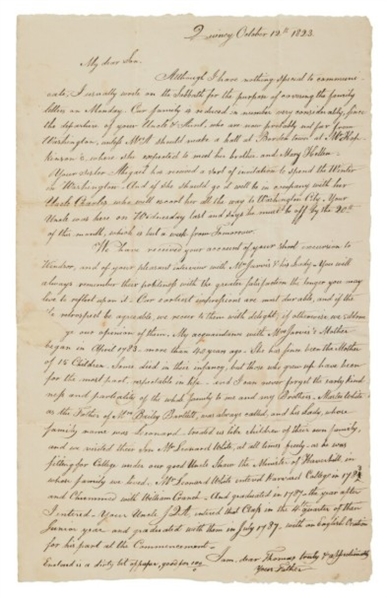 Quincy October 12th 1823.
My dear Son.
Although I have nothing special to communi-
cate, I usually write on the Sabbath for the purpose of covering the family
letters on Monday. Our family is reduced in number very considerably, since
the departure of your Uncle & Aunt, who are now probably not far from
Washington, unless Mr A should make a halt at Boston town at Mr Hop
kinson's, where she expected to meet her brother and Mary Hellen.
Your sister Abigail has received a sort of invitation to spend the Winter
in Washington. And if she should go it will be in company with her
Uncle Charles who will escort her all the way to Washington City. Your
Uncle was here on Wednesday last and says he must be off by the 20th
of this month, which is but a week from tomorrow.
We have received your account of your short excursion to
Windsor, and of your pleasant interview with Mr Jarvis & his lady. You will
always remember their politeness with the greater satisfaction the longer you may
live to reflect upon it. Our earliest impressions are most durable, and if the
retrospect be agreeable, we recur to them with delight; if otherwise we
our opinion of them. My acquaintance with Mrs Jarvis's Mother
began in April 1783. more than 40 years ago. She has since been the Mother
of 15 Children. Some died in their infancy, but those who grew up have been
for the most part, respectable in life - and I can never forget the early kind
ness and partiality of the whole family to me and my Brothers. Master White
as the Father of Mrs Baily Bartlett, was always called, and his lady, whose
family name was Leonard, treated us like children of their own family,
and we visited their Son Mr Leonard White, at all times freely, as he was
fitting for College under our good Uncle Shaw the Minister of Haverhill, in
whose family we lived. Mr Leonard White entered Harvard College in 178
and Chummed with William Cranch. And graduated in 1787. the year after
I entered. Your Uncle J Q A entered that Class in the 4th quarter of their
Junior year and graduated with them in July 1787. with an English Oration
for his part at the Commencement.
Enclosed is a dirty bit of paper, good for
I am, dear Thomas truly & affectionately
Your Father